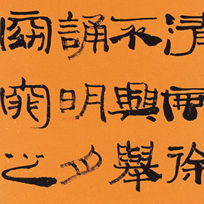 清風徐
不興舉
誦明月
窈窕之